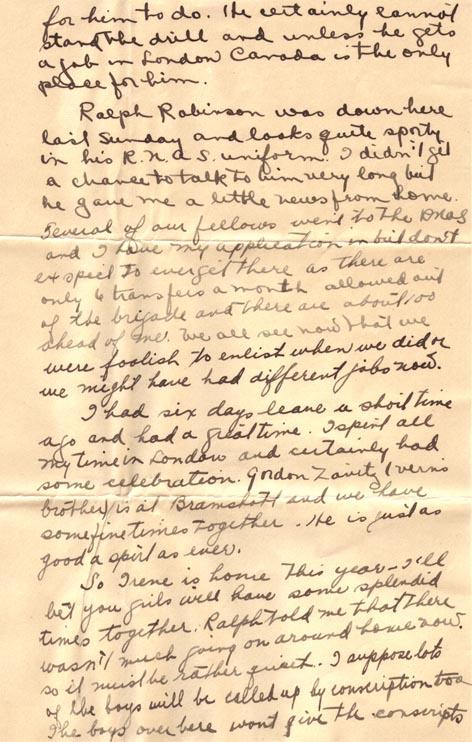 for him to do. He certainly cannot
stand the drill and unless he gets
a job in London Canada is the only
place for him.
Ralph Robinson was down here
last Sunday and looks quite sporty
in his R.N.A.S. uniform. I didn't get
a chance to talk to him very long but
he gave me a little news from home.
Several of our fellows went to the RNAS
and I have my application in but don't
expect to ever get there as there are
only 6 transfers a month allowed out
of the brigade and there are about 100
ahead of me. We all see now that we
were foolish to enlist when we did or
we might have had different jobs now.
I had six days leave a short time
ago and had a great time. I spent all
my time in London and certainly had
some celebration. Gordon Zavitz (Verns
brother) is at Bramshott and we have
some fine times together. He is just as
good a spirt as ever.
So Irene is home this year - I'll
bet you girls will have some splendid
times together. Ralph told me that there
wasn't much going on around home now.
so it must be rather quiet. I suppose lots
of the boys will be called up by conscription too
The boys over here wont give the conscripts